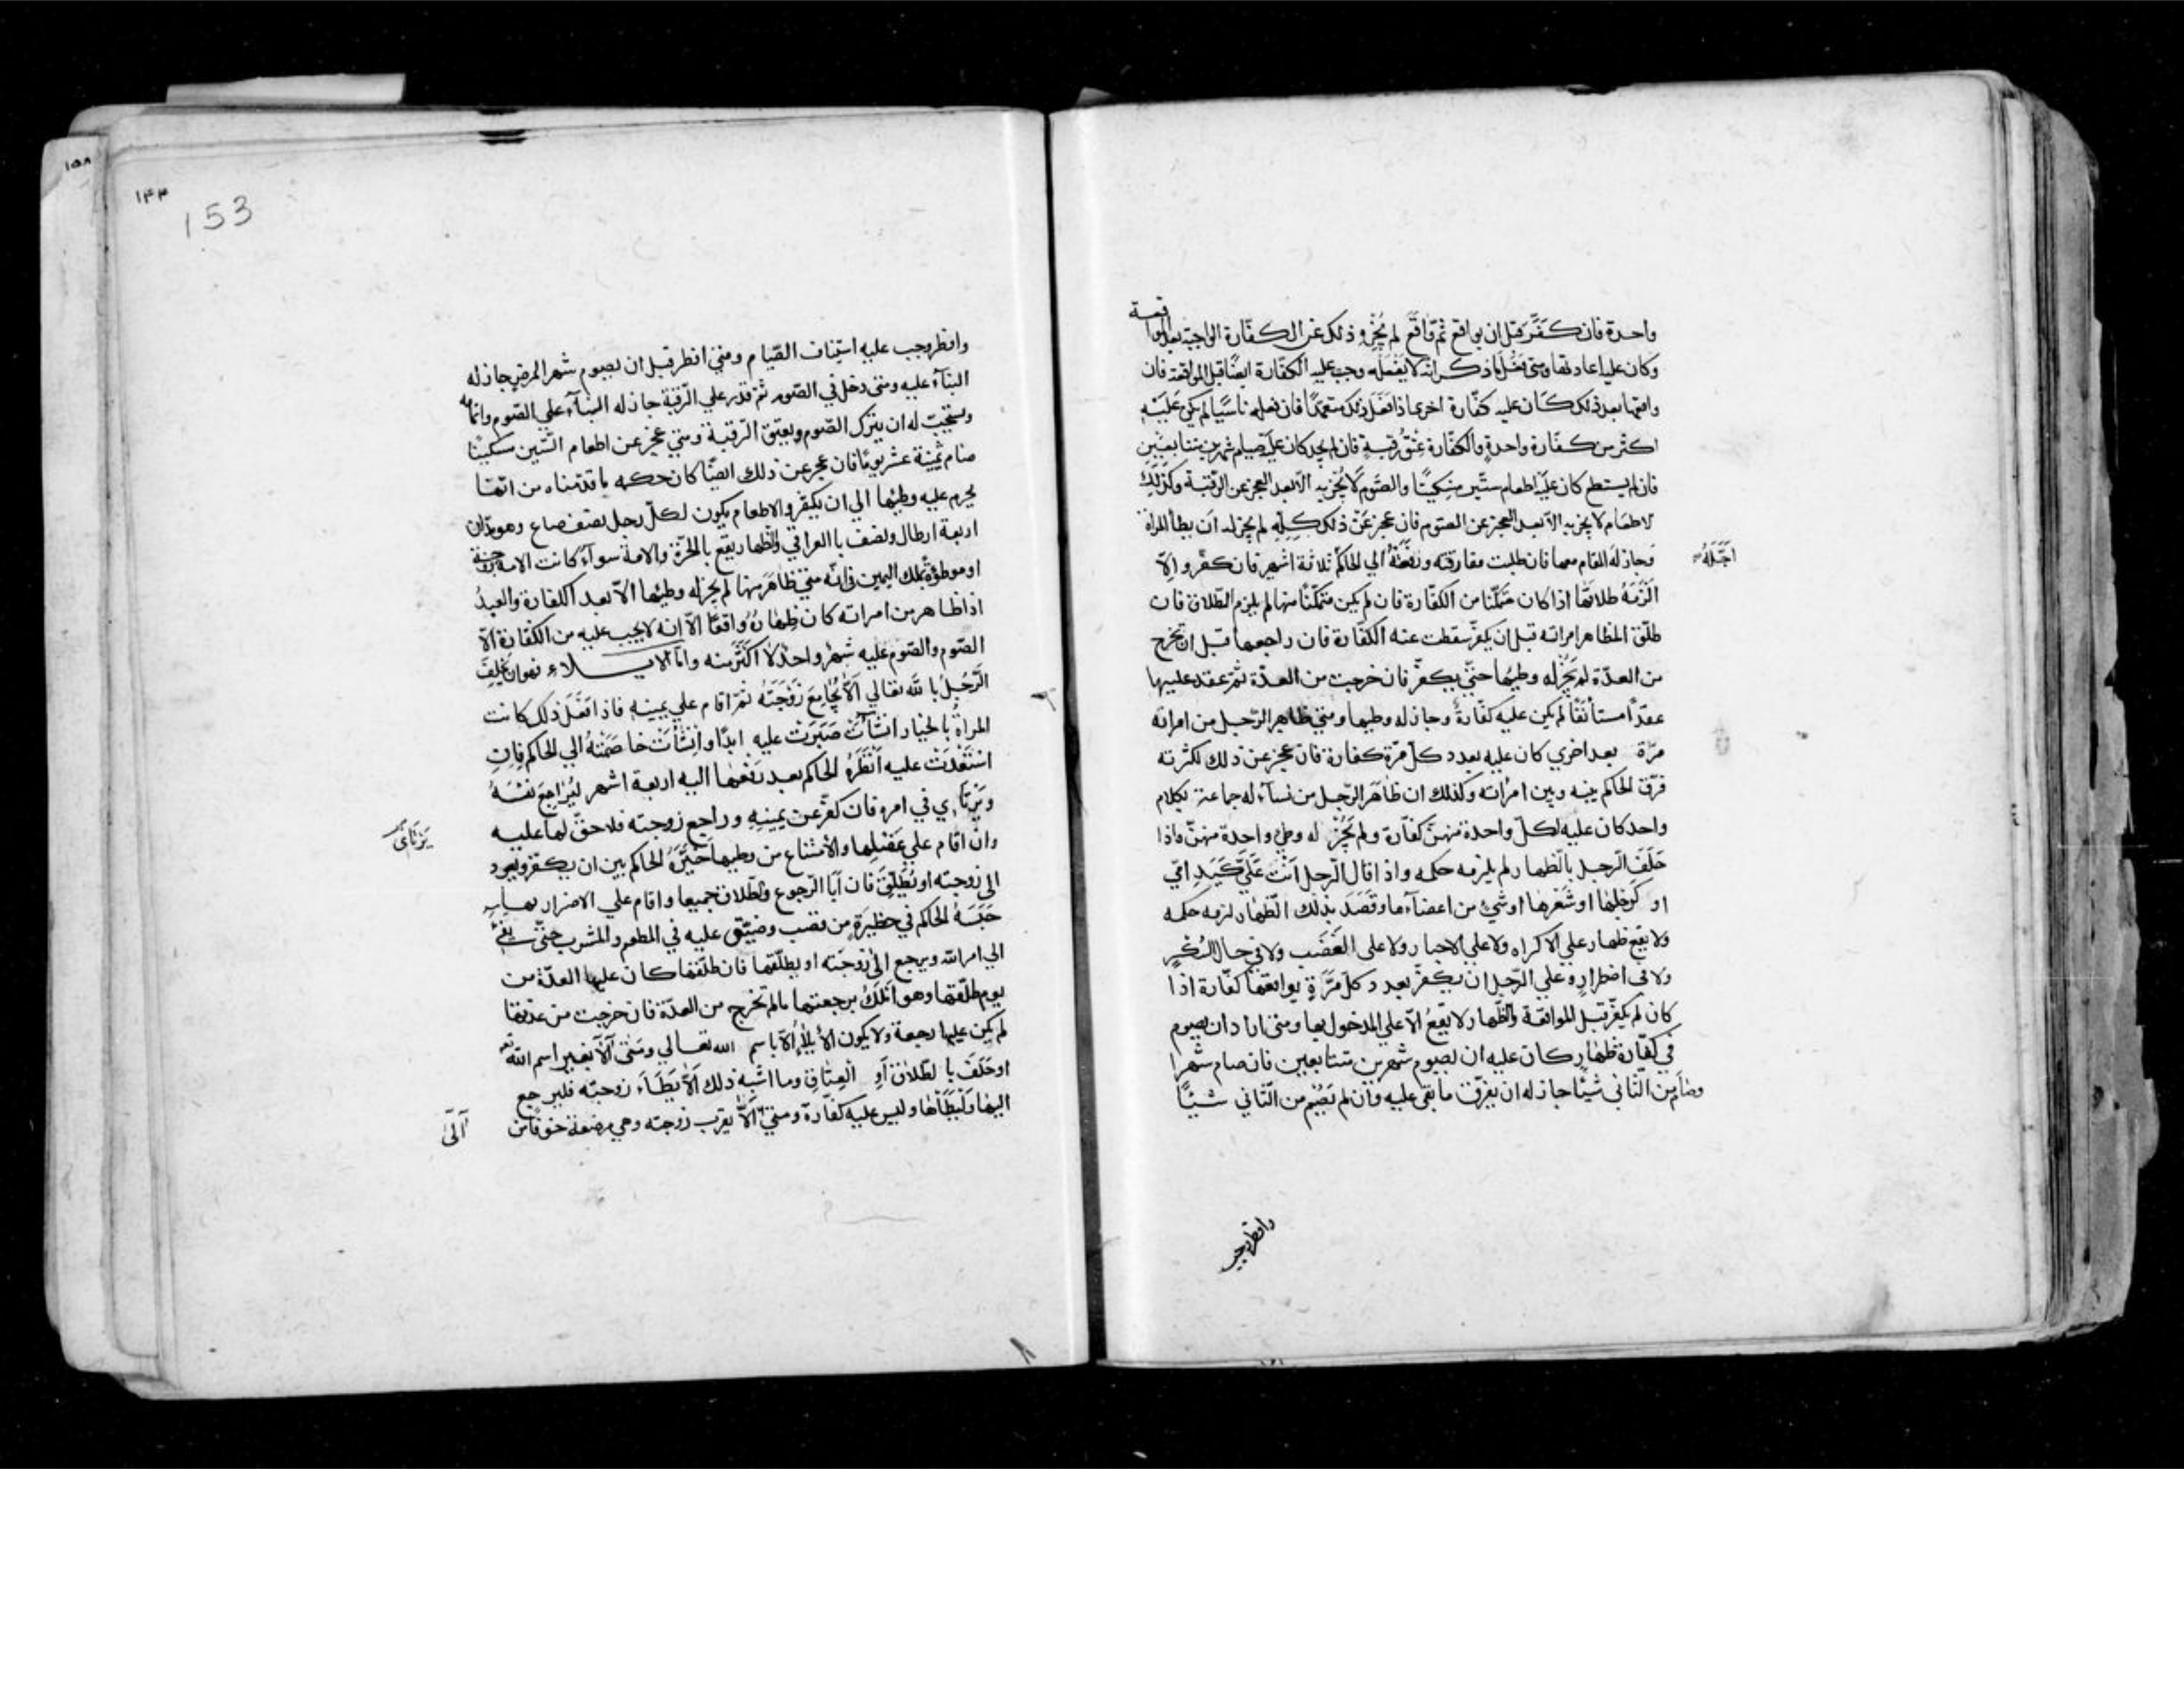 واحدة فان كَفَّرَ قبل ان يواقع ثُمّ وَاقَعَ لم يُجْزِهِ ذلك عن الكفّارة الواجبة بعد المواقعة
وكان عليه اعادتها ومتى فَعَلَ ماذكر انّه لا يفعله وجب عليه الكفّارة ايضًا قبل المواقعة فان
واقعها بعد ذلك كان عليه كفّارة اخرى اذا فَعَلَ ذلك متعمّدًا فان فعله ناسيًا لم يكن عَلَيْهِ
اكثر من كفّارة واحدةٍ والكفّارة عِتْقُ رقبةٍ فان لم يجد كان عليه صيام شهرين متتابعَيْن
فان لم يستطع كان عليه اطعام ستّين مِسْكينًا والصّوم لا يُجْزِيه الّا بعد العجز عن الرقبة وكَذَلِكَ
لاطعام لا يجزيه الّا بعد العجز عن الصّوم فان عجز عَنْ ذلك كلِّهِ لم يجز له اَن يطأ المراة
وجاز لَه المقام معها فان طلبت مفارقته ورفَعَتْهُ الي الحاكم ثلاثة اشهر فان كفّر والّا
اَلْزَمَهُ طلاقَها اذا كان متمكّنا من الكفّارة فان لم يكن متمكّنًا منها لم يلزم الطّلاق فان
اَجَّلَهُ
طلّق المظاهر امراته قبل ان يكفّر سقطت عنه الكفّارة فان راجعها قبل ان تخرج
من العدّة لم يَجُزْ له وطيُها حتّى يكفّر فان خرجت من العدّة ثمّ عقد عليها
عقدًا مستأنَفًا لم يكن عليه كفّارةٌ وجاز له وطيها ومتي ظاهر الرّجل من امراته
مرّة بعد اخري كان عليه بعدد كلّ مرّة كفّارة فان عجز عن ذلك لكثرته
فرّق الحاكم بينه وبين امراته وكذلك ان ظاهَرَ الرّجل من نسآء له جماعة بكلام
واحد كان عليه لكلّ واحدة منهنّ كفّارة ولم يَجُزْ له وطي واحدة منهنّ واذا
حَلَفَ الرّجل بالظّهار لم يلزمه حكمه واذا قال الرّجل اَنْتِ عَلَيَّ كَيَدِ امّي
او كَرِجْلِها اوشَعْرِها اوشيء من اعضآءها وقَصَدَ بذلك الظّهار لزمه حكمه
ولا يقع ظهار علي الاكراه ولا علي الاجبار ولا على الغَضَب ولا في حال السُّكْرِ
ولا في اضطراره وعلي الرّجل ان يكفّر بعدد كلّ مَرَّةٍ يواقعها كفّارة اذا
كان لم يكفّر قبل المواقعة والظّهار لا يقعُ الّا علي المدخول بها ومتي اراد ان يصوم
في كفّارة ظهار كان عليه ان يصوم شهرين متتابعين فان صام شهرا
وصام من الثّاني شيئًا جاز له ان يفرّق ما بقي عليه وان لم يَصُمْ من الثّاني شيئًا
وافطر وجب
١٥٨
١٤٣
153
وافطر وجب عليه استيناف الصّيام ومتي افطر قبل ان يصوم شهر المرض جاز له
البنآء عليه ومتي دخل في الصّوم ثمّ قدر علي الرّقبة جاز له البنآء علي الصّوم واتمامه
ويستحبّ له ان يترك الصّوم ويعتق الرّقبة ومتي عجز عن اطعام السّتين مسكينًا
صام ثمنية عشر يومًا فان عجز عن ذلك ايضًا كان حكمه ما قدّمناه من انّها
يحرم عليه وطيُها الي ان يكفّر والاطعام يكون لكلّ رجل نصف صاع وهو مدّان
اربعة ارطال ونصف بالعراقي والظّهار يقع بالحُرّة والامة سوآءً كانت الامة زوجته
او موطؤةً بملك اليمين فانّه متي ظاهَرَ منها لم يجز له وطيُها الّا بعد الكفّارة والعبدُ
اذا ظاهر من امراته كان ظِهارُهُ واقعًا الّا انه لا يجب عليه من الكفّارة الّا
الصّوم والصّوم عليه شهرٌ واحدٌ لا اَكْثَرَ منه وامّا الايلاء فهو ان يَحْلِفَ
الرّجلُ بالله تعالي اَلّا يُجَامِعَ زَوْجَتَهُ ثمّ اقام علي يمينِهِ فاذا فَعَلَ ذلك كانت
المراةُ بالخيار ان شَآءَتْ صَبَرَتْ عليه ابدًا وان شَآءَتْ خاصَمَتْهُ الي الحاكم فان
اسْتَعْدَتْ عليه اَنْظَرَهُ الحاكم بعد رَفْعِها اليه اربعة اشهر لِيُرَاجِعَ نَفْسَهُ
ويَرْتَاَي في امره فان كفّر عن يمينِهِ وراجع زوجته فلا حقّ لها عليه
يَرْتَايَ
وان اقام علي عَضْلِها والامتناع من وطيها خَيَّرَهُ الحاكم بين ان يكفّر ويعود
الي زوجته او يُطَلِّقَ فان اَبَا الرّجوع والطّلاق جميعا واقام علي الاضرار بها
حَبَسَهُ الحاكم في حظيرةٍ من قصب وضيّق عليه في المطعم والمشرب حتّي يفيءَ
الي امر الله ويرجع الي زوجته او يطلّقها فان طلّقها كان عليها العدّة من
يوم طلّقها وهو اَمْلَكُ برجعتها مالم تخرج من العدّة فان خرجت من عدّتها
لم يكن عليها رجعة ولا يكون الايلاءُ الّا باسم الله تعالي ومتي آلَا بغير اسم الله تعالى
اوحَلَفَ بالطّلاق اَوِ العِتاق وما اشبه ذلك اَلّا يَطَاَءَ زوجته فليرجع
اليها ولْيَطَأْها وليس عليه كفّارة ومتي اَلّا يقرب زوجته وهي مرضعة خوفًا من
آلَى